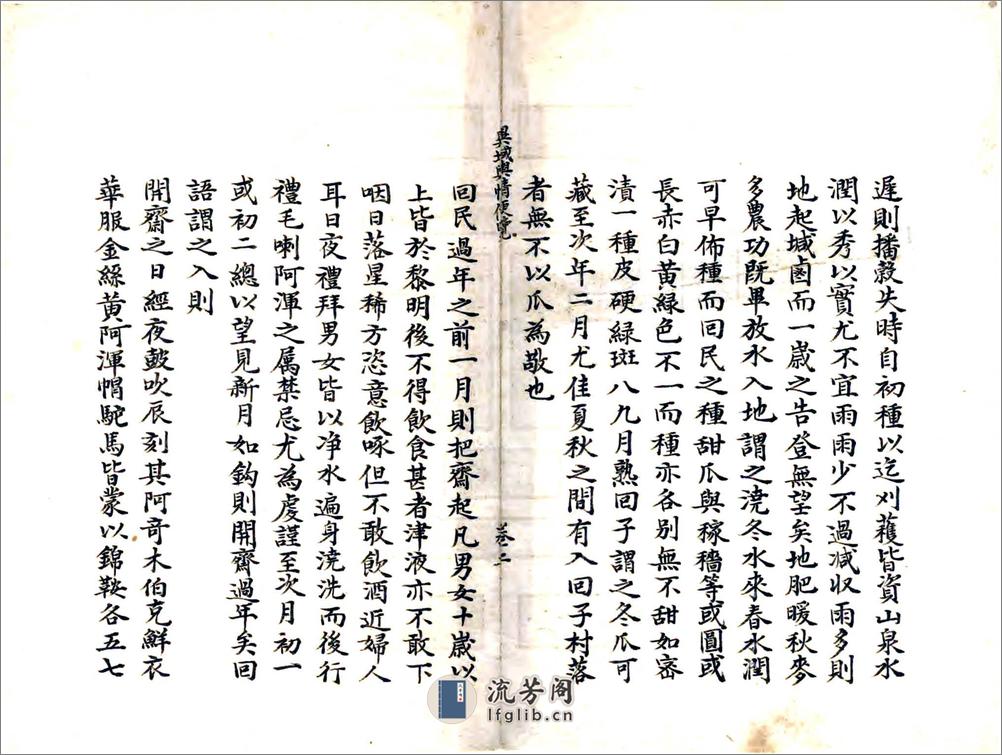 遲則播穀失時自初種以迄刈穫皆資山泉水
潤以秀以實尤不宜雨雨少不過減收雨多則
地起堿鹵而一歲之告登無望矣地肥暖秋麥
多農功既畢放水入地謂之澆冬水來春水潤
可早佈種而回民之種甜瓜與稼穡等或圓或
長赤白黃綠色不一而種亦各別無不甜如密
漬一種皮硬綠斑八九月熟回子謂之冬瓜可
藏至次年二月尤佳夏秋之間有入回子村落
者無不以瓜為敬也
異域輿情便覽
卷二
回民過年之前一月則把齋起凡男女十歲以
上皆於黎明後不得飲食甚者津液亦不敢下
咽日落星稀方恣意飲啄但不敢飲酒近婦人
耳日夜禮拜男女皆以净水遍身澆洗而後行
禮毛喇阿渾之属禁忌尤為虔謹至次月初一
或初二總以望見新月如鈎則開齋過年矣回
語謂之入則
開齋之日經夜鼓吹辰刻其阿奇木伯克鮮衣
華服金絲黃阿渾帽駝馬皆蒙以錦鞍各五七
流芳阁
lfglib.cn